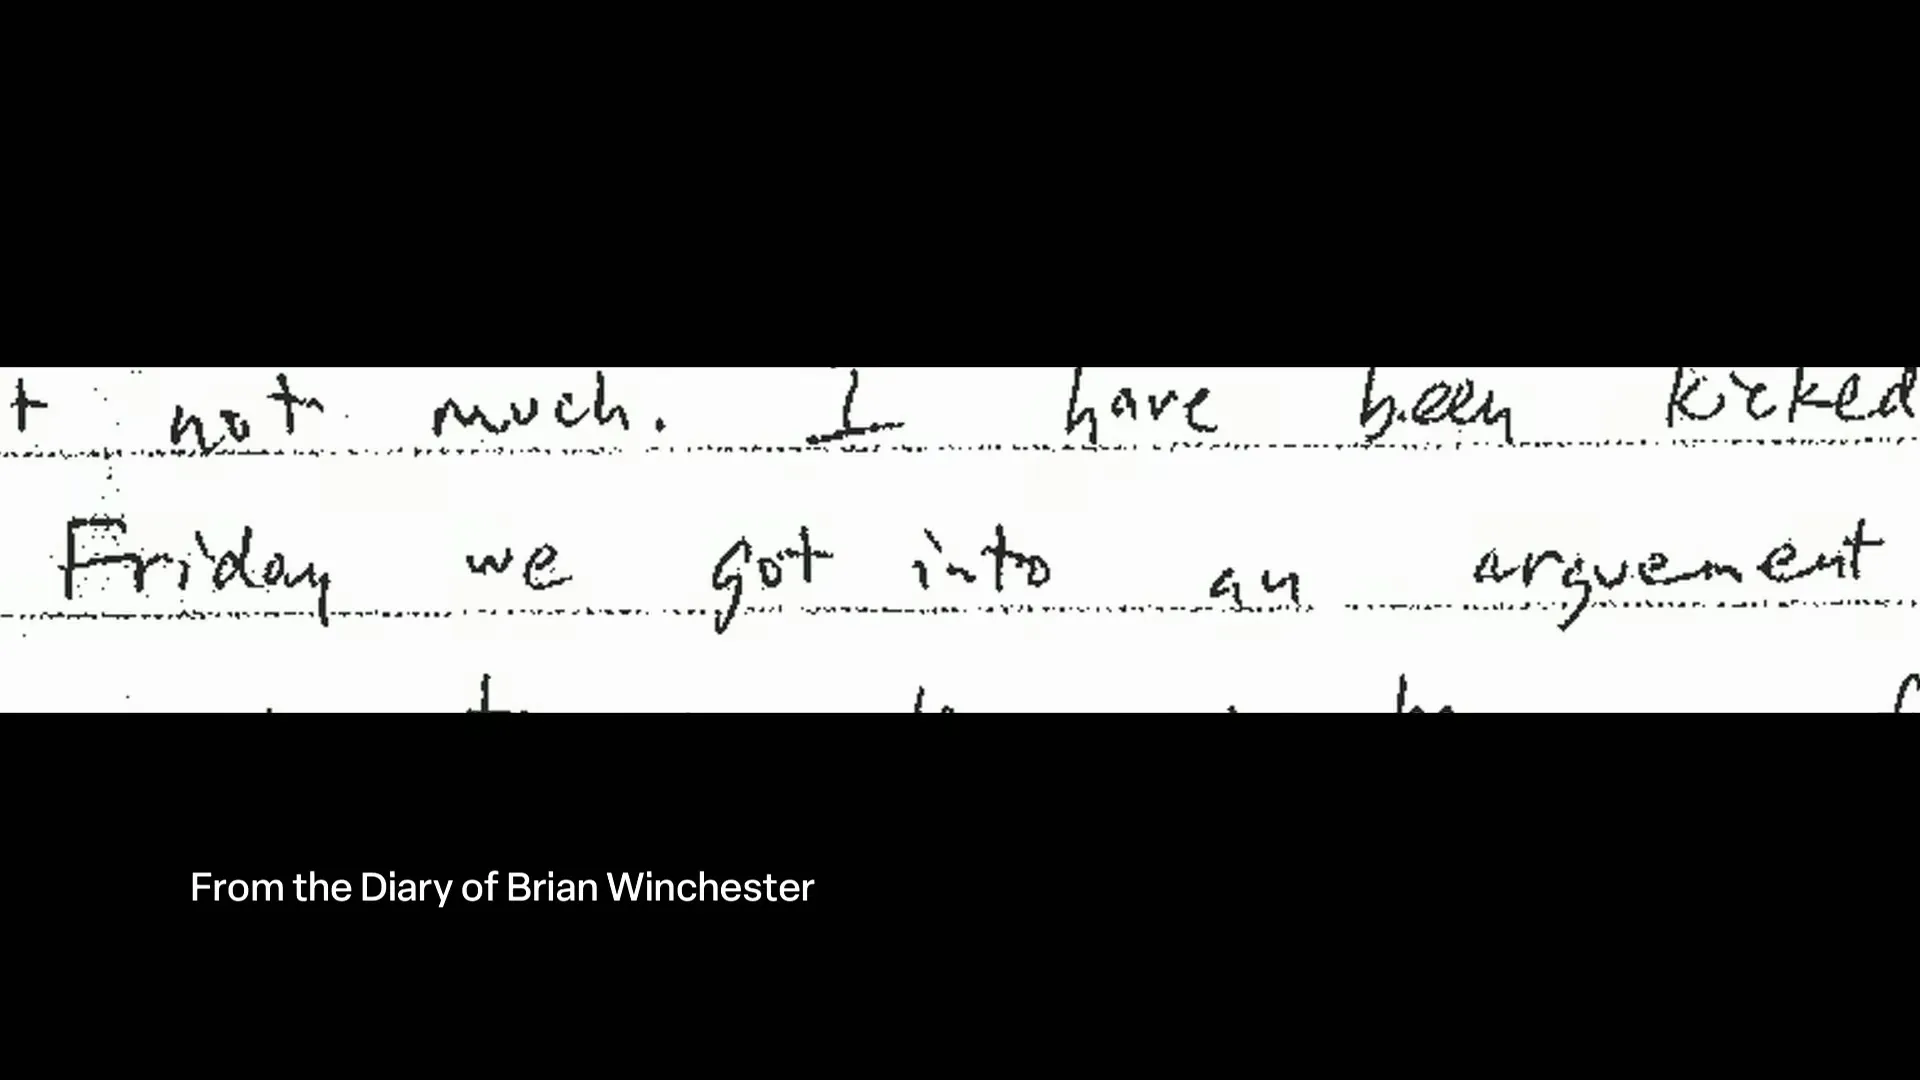 t not much. I have been kicked
Friday we got into an arguement
From the Diary of Brian Winchester